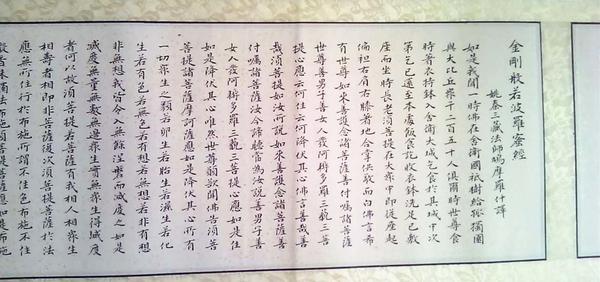 金剛般若波羅蜜經
姚秦三藏法師鳩摩羅什譯
如是我聞一時佛在舍衛國祇樹給孤獨園
與大比丘眾千二百五十人俱爾時世尊食
時著衣持鉢入舍衛大城乞食於其城中次
第乞已還至本處飯食訖收衣鉢洗足已敷
座而坐時長老須菩提在大眾中即從座起
偏袒右肩右膝著地合掌恭敬而白佛言希
有世尊如來善護念諸菩薩善付囑諸菩薩
世尊善男子善女人發阿耨多羅三藐三菩
提心應云何住云何降伏其心佛言善哉善
哉須菩提如汝所說如來善護念諸菩薩善
付囑諸菩薩汝今諦聽當為汝說善男子善
女人發阿耨多羅三藐三菩提心應如是住
如是降伏其心唯然世尊願樂欲聞佛告須
菩提諸菩薩摩訶薩應如是降伏其心所有
一切眾生之類若卵生若胎生若濕生若化
生若有色若無色若有想若無想若非有想
非無想我皆令入無餘涅槃而滅度之如是
滅度無量無數無邊眾生實無眾生得滅度
者何以故須菩提若菩薩有我相人相眾生
相壽者相即非菩薩復次須菩提菩薩於法
應無所住行於布施所謂不住色布施不住